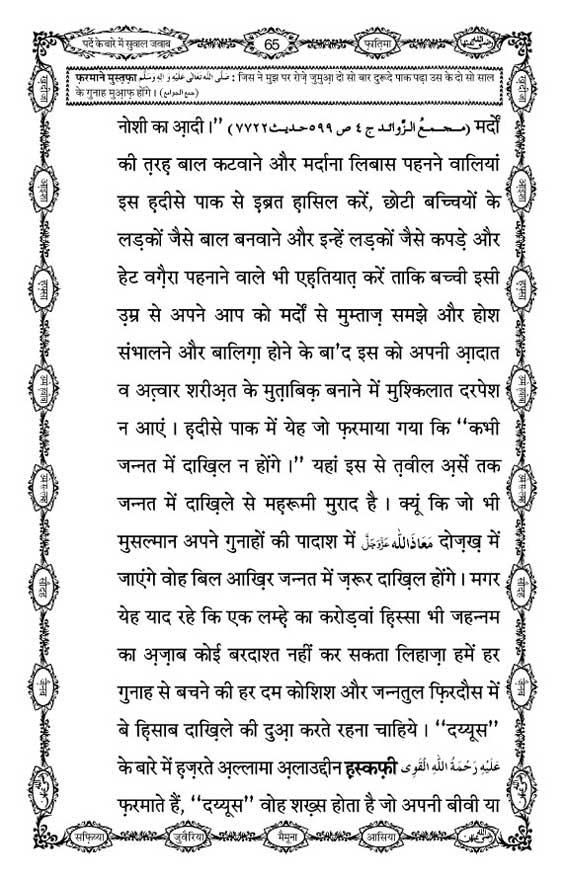 पर्दे के बारे में सुवाल जवाब
65
फ़ातिमा
फ़रमाने मुस्तफ़ा صَلَّى اللهُ تَعَالٰى عَلَيْهِ وَاٰلِهٖ وَسَلَّم : जिस ने मुझ पर रोज़े जुमुआ दो सो बार दुरूदे पाक पढ़ा उस के दो सो साल
के गुनाह मुआफ़ होंगे। (جمع الجوامع)
नोशी का आ़दी।’’ (مَجمعُ الزَّوائد ج ٤ ص ٥٩٩ حدیث ٧٧٢٢) मर्दों
की त़रह़ बाल कटवाने और मर्दाना लिबास पहनने वालियां
इस ह़दीसे पाक से इ़ब्रत ह़ासिल करें, छोटी बच्चियों के
लड़कों जैसे बाल बनवाने और इन्हें लड़कों जैसे कपड़े और
हेट वग़ैरा पहनाने वाले भी एह़तियात़ करें ताकि बच्ची इसी
उ़म्र से अपने आप को मर्दों से मुम्ताज़ समझे और होश
संभालने और बालिग़ा होने के बा’द इस को अपनी आ़दात
व अत़्वार शरीअ़त के मुत़ाबिक़ बनाने में मुश्किलात दरपेश
न आएं। ह़दीसे पाक में येह जो फ़रमाया गया कि ‘‘कभी
जन्नत में दाख़िल न होंगे।’’ यहां इस से त़वील अ़र्से तक
जन्नत में दाख़िले से मह़रूमी मुराद है। क्यूं कि जो भी
मुसल्मान अपने गुनाहों की पादाश में مَعَاذَاللّٰه عَزَّوَجَلَّ दोज़ख़ में
जाएंगे वोह बिल आख़िर जन्नत में ज़रूर दाख़िल होंगे। मगर
येह याद रहे कि एक लम्ह़े का करोड़वां ह़िस्सा भी जहन्नम
का अ़ज़ाब कोई बरदाश्त नहीं कर सकता लिहाज़ा हमें हर
गुनाह से बचने की हर दम कोशिश और जन्नतुल फ़िरदौस में
बे ह़िसाब दाख़िले की दुआ़ करते रहना चाहिये। ‘‘दय्यूस’’
के बारे में ह़ज़रते अ़ल्लामा अ़लाउद्दीन ह़स्कफ़ी عَلَيْهِ رَحْمَةُ اللهِ الْقَوِى
फ़रमाते हैं, ‘‘दय्यूस’’ वोह शख़्स होता है जो अपनी बीवी या
सफ़िय्या
जुवैरिया
मैमूना
आसिया